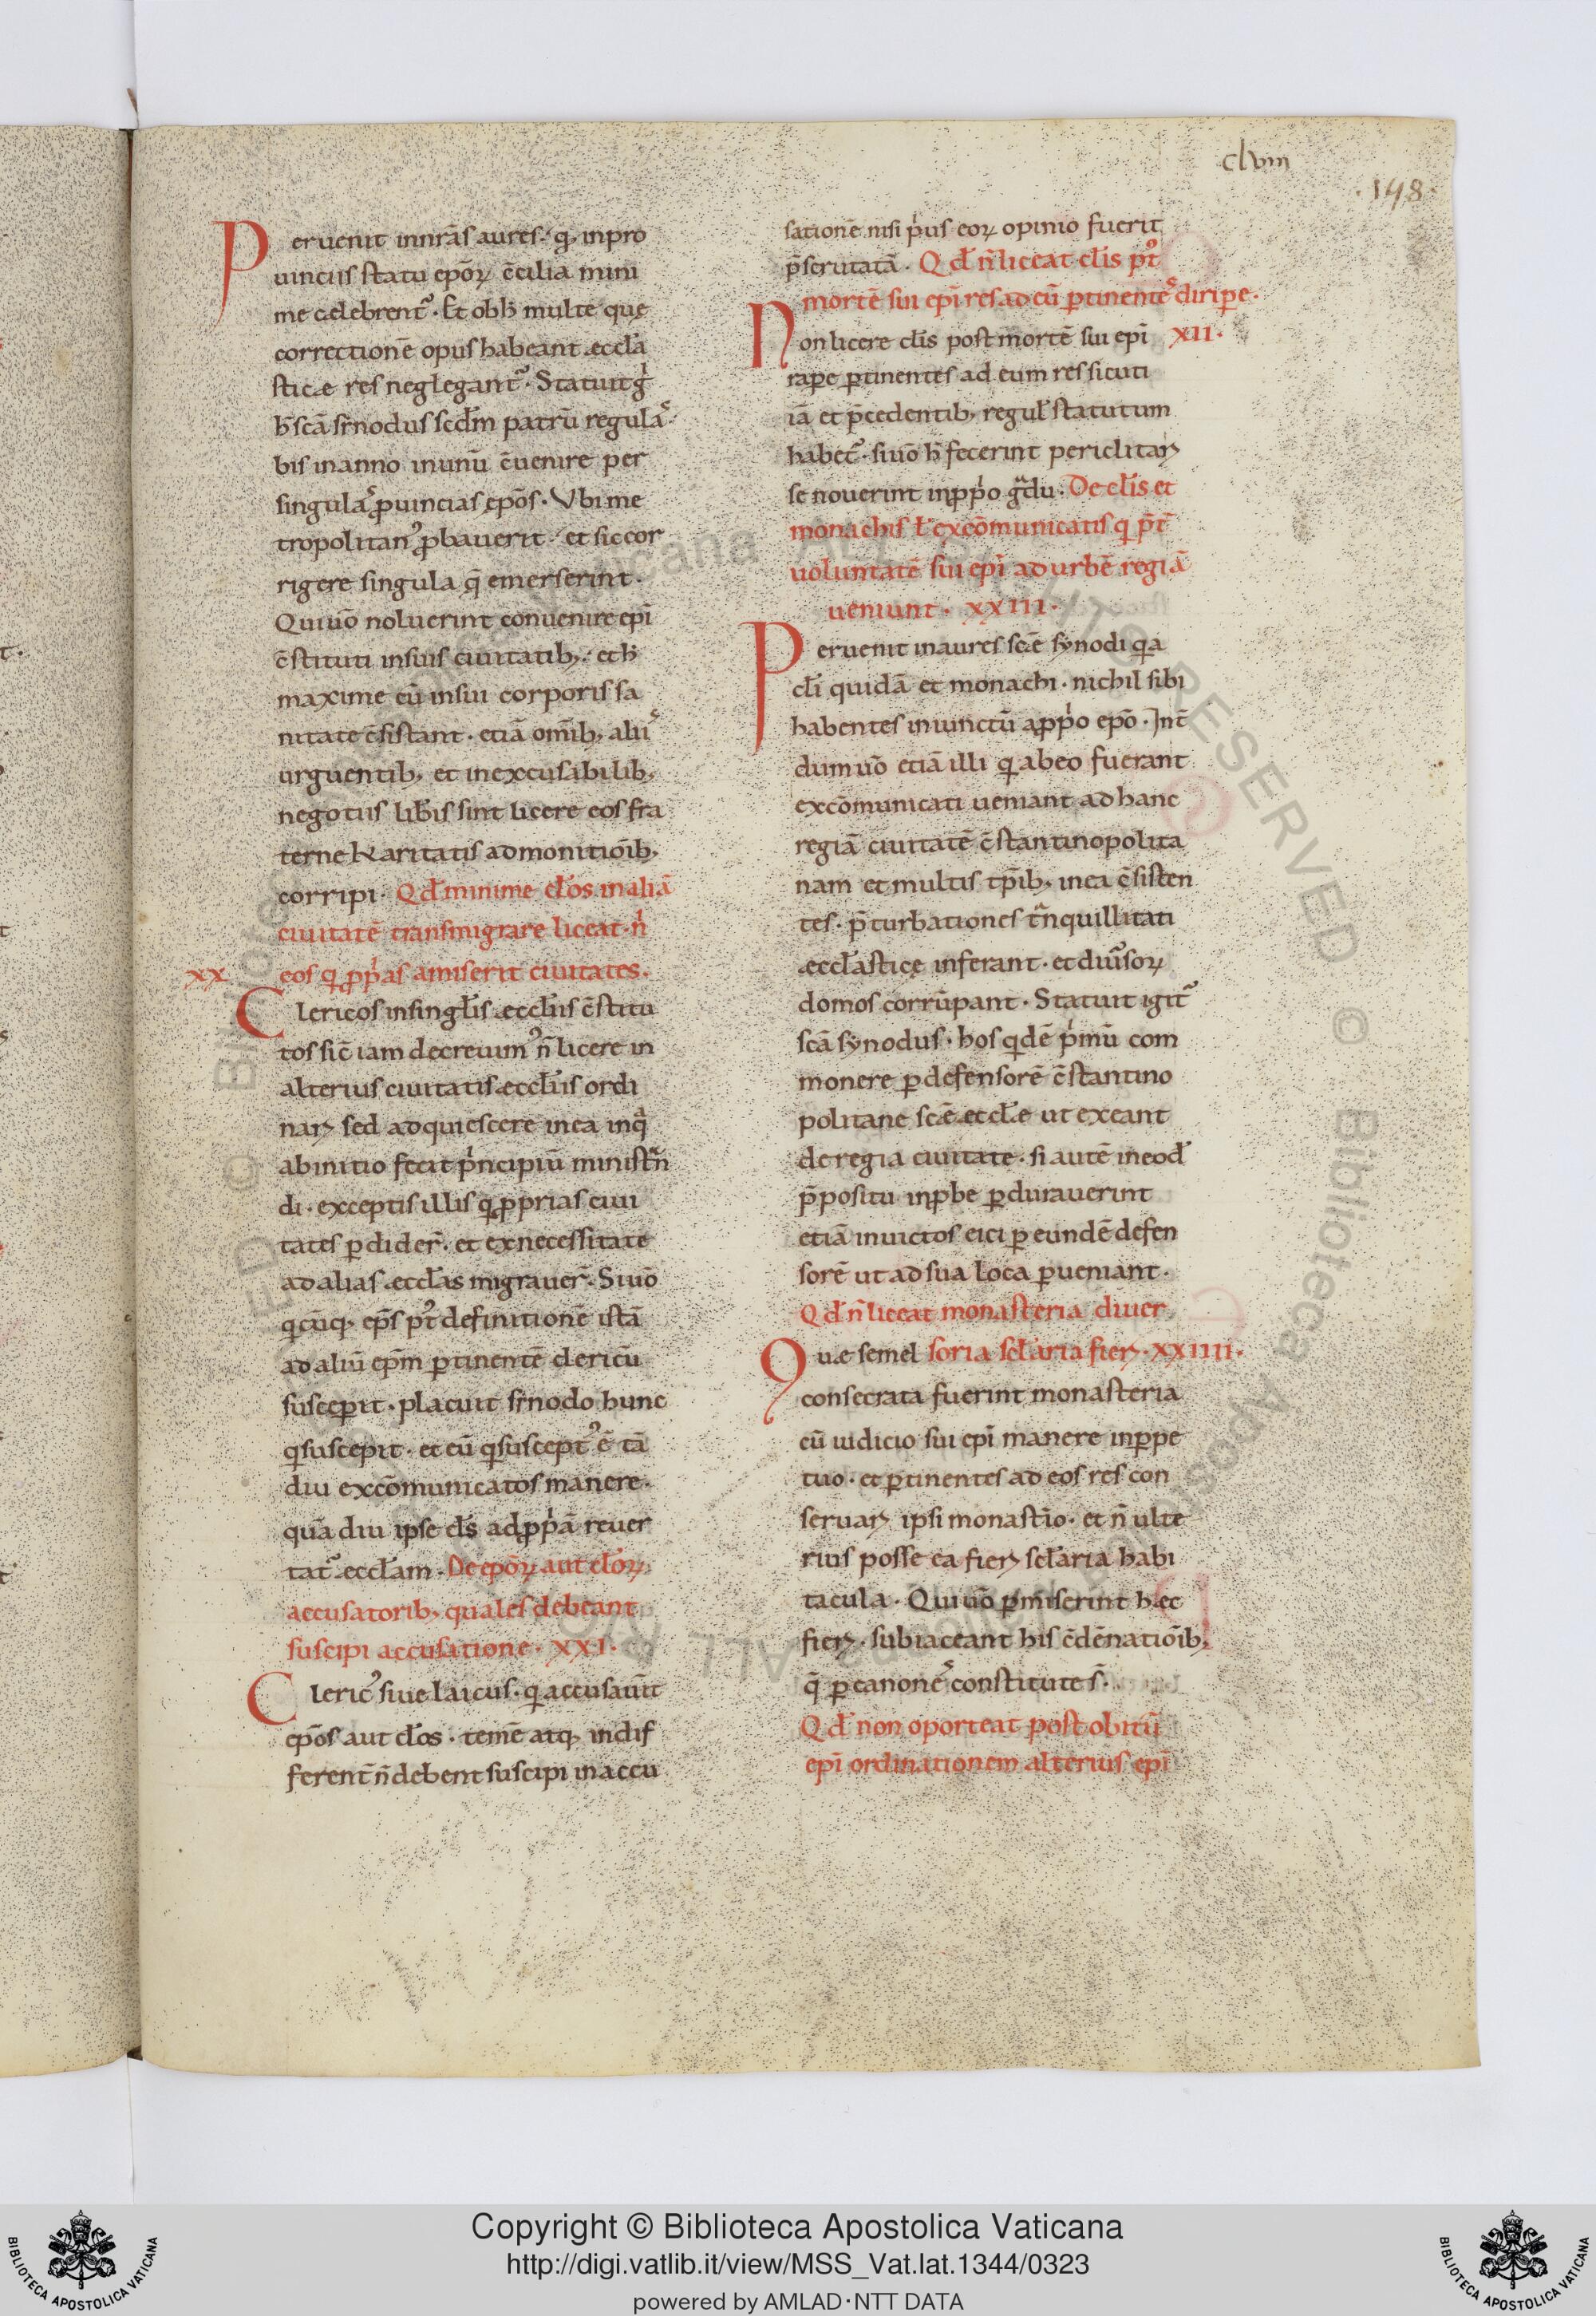 clviii
·148·
Peruenit inn̄rās aures·' q, inpro
uinciis statu ep̄oꝝ c̄cilia mini
me celebrent᷒· Et ob h̄ multe quę
correctionē opus habeant æccl̄a
sticæ res neglegant᷒· Statuit gͥ
h̄ sc̄a sr̄nodus scd̄m patrū regulaˢ·
bis inanno inunū c̄uenire per
singulaˢ ꝓuincias ep̄os· Vbi me
tropolitan᷒ ꝓbauerit·' et sic cor
rigere singula q̄ emerserint·
Qui uō noluerint conuenire ep̄i
c̄stituti insuis ciuitatib;·' et h̄
maxime cū insui corporis sa
nitate c̄sistant· etiā om̄ib; aliiˢ
urguentib; et inexcusabilib;
negotiis lib̄is sint licere eos fra
terne karitatis admonitiōib;
corripi· Qd̄ minime cl̄os inaliā
ciuitatē transmigrare liceat· nͥ
xx eos q ꝓpͥas amiserit ciuitates·
Clericos insingl̄is æccl̄iis c̄stitu
tos sic̄ iam decreuim᷒ n̄ licere in
alterius ciuitatis æccl̄iis ordi
narꝫ sed adquiescere inea inqͣ
abinitio fecit pͥncipiū ministrͣn
di· exceptis illis q ꝓprias ciui
tates ꝑdider̄· et exnecessitate
ad alias æccl̄as migrauer̄· Si uō
qcūq, ep̄s pt᷒ definitionē istā
ad aliū ep̄m ꝑtinentē clericū
susceꝑit· placuit sr̄nodo hunc
q suscepit· et eū q suscept᷒ ē tā
diu excōmunicatos manere·
quādiu ipse cl̄s ad ꝓpͥā reuer
tat᷒ æccl̄am· De ep̄oꝝ aut cl̄oꝝ
accusatorib; quales debeant
suscipi accusatione· XXI·
Cleric᷒ siue laicus· q accusauīt
ep̄os aut cl̄os· temē atq, indif
ferent̄ n̄ debent suscipi inaccu
sationē nisi pͥus eoꝝ opinio fuerit
p̄scrutatā· Qd̄ n̄ liceat cl̄is pt᷒
mortē sui ep̄i res ad eū ꝑtinenteˢ diriꝑe·
Non licere cl̄is post mortē sui ep̄i XII·
raꝑe ꝑtinentes ad eum res sicuti
iā et p̄cedentib; regul̄ statutum
habet᷒· si uō h̄ fecerint periclitarꝫ
se nouerint inꝓpͥo gͣdu· De cl̄is et
monachis ł excōmunicatis q p̄t̄
uoluntatē sui ep̄i ad urbē regiā
ueniunt· xxIII·
Peruenit inaures sc̄e sẏnodi qa
cl̄i quidā et monachi· nichil sibi
habentes iniunctū a ꝓpͥo ep̄o· Int̄
dum uō etiā illi q abeo fuerant
excōmunicati ueniant ad hanc
regiā ciuitatē c̄stantinopolita
nam et multis tp̄ib; inea c̄sisten
tes· ꝑturbationes trͣnquillitati
æccl̄asticę inferant· et diu᷒soꝝ
domos corrūpant· Statuit igit᷒
sc̄a sẏnodus· hos qdē pͥmū com
monere ꝑ defensorē c̄stantino
politane sc̄æ æccl̄æ ut exeant
de regia ciuitate· si autē ineod̄
p̄positu inꝓbe ꝑdurauerint
etiā inuictos eici ꝑ eundē defen
sorē ut ad sua loca ꝑueniant·
Qd̄ n̄ liceat monasteria diuer
Quæ semel soria scl̄aria fierꝫ· XXIIII·
consecrata fuerint monasteria
cū iudicio sui ep̄i manere inꝑpe
tuo· et ꝑtinentes ad eos res con
seruarꝫ ipsi monastio· et n̄ ulte
rius posse ea fierꝫ scl̄aria habi
tacula· Qui uō ꝑmiserint hæc
fierꝫ· subiaceant his c̄dēnatiōib;
q̄ ꝑ canoneˢ constitute s̄·
Qd̄ non oporteat post obitū
ep̄i ordinationem alterius ep̄i
Copyright © Biblioteca Apostolica Vaticana
http://digi.vatlib.it/view/MSS_Vat.lat.1344/0323
powered by AMLAD·NTT DATA
BIBLIOTECA APOSTOLICA VATICANA
BIBLIOTECA APOSTOLICA VATICANA